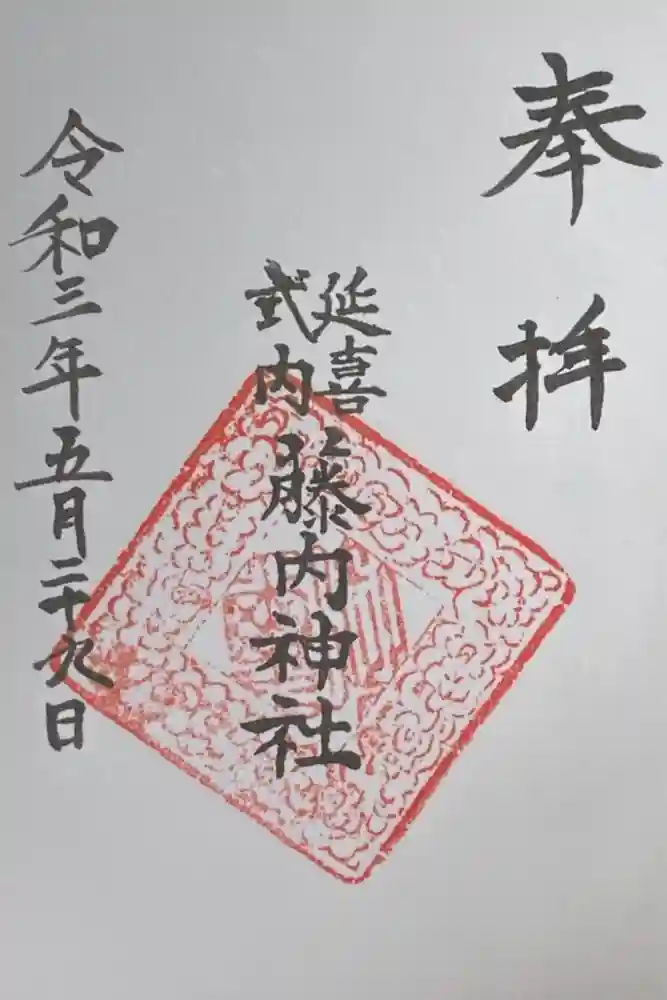 奉拝
延喜
式内
藤内神社
令和三年五月二十九日